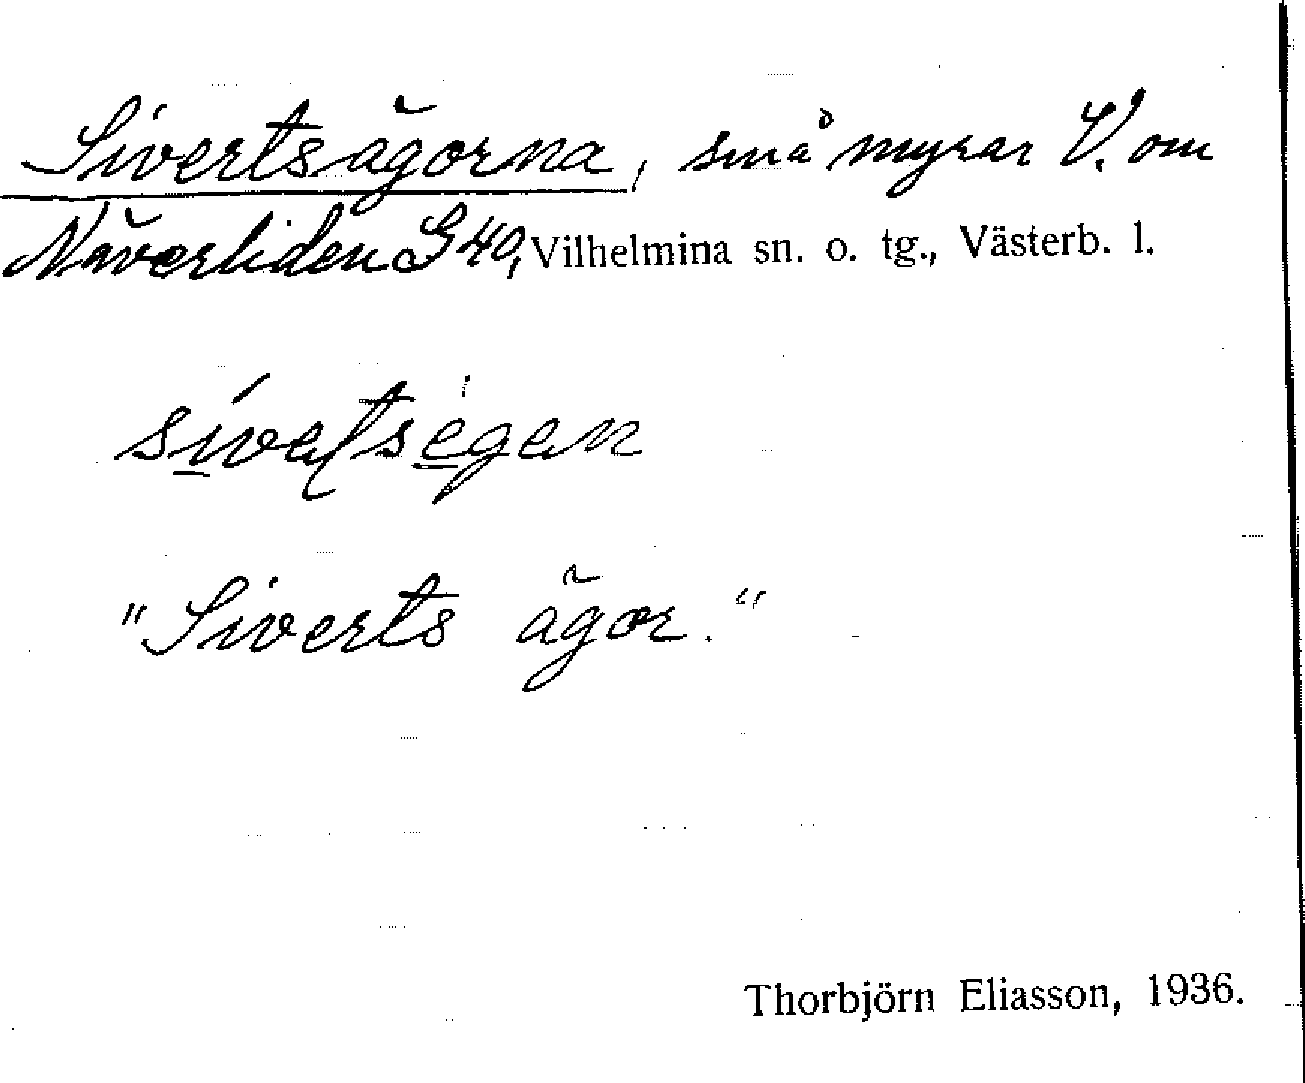 Sivertsägorna, små myrar V. om
Näverliden G 40, Vilhelmina sn. o. tg., Västerb. l.
"Siverts ägor."
Thorbjörn Eliasson, 1936.